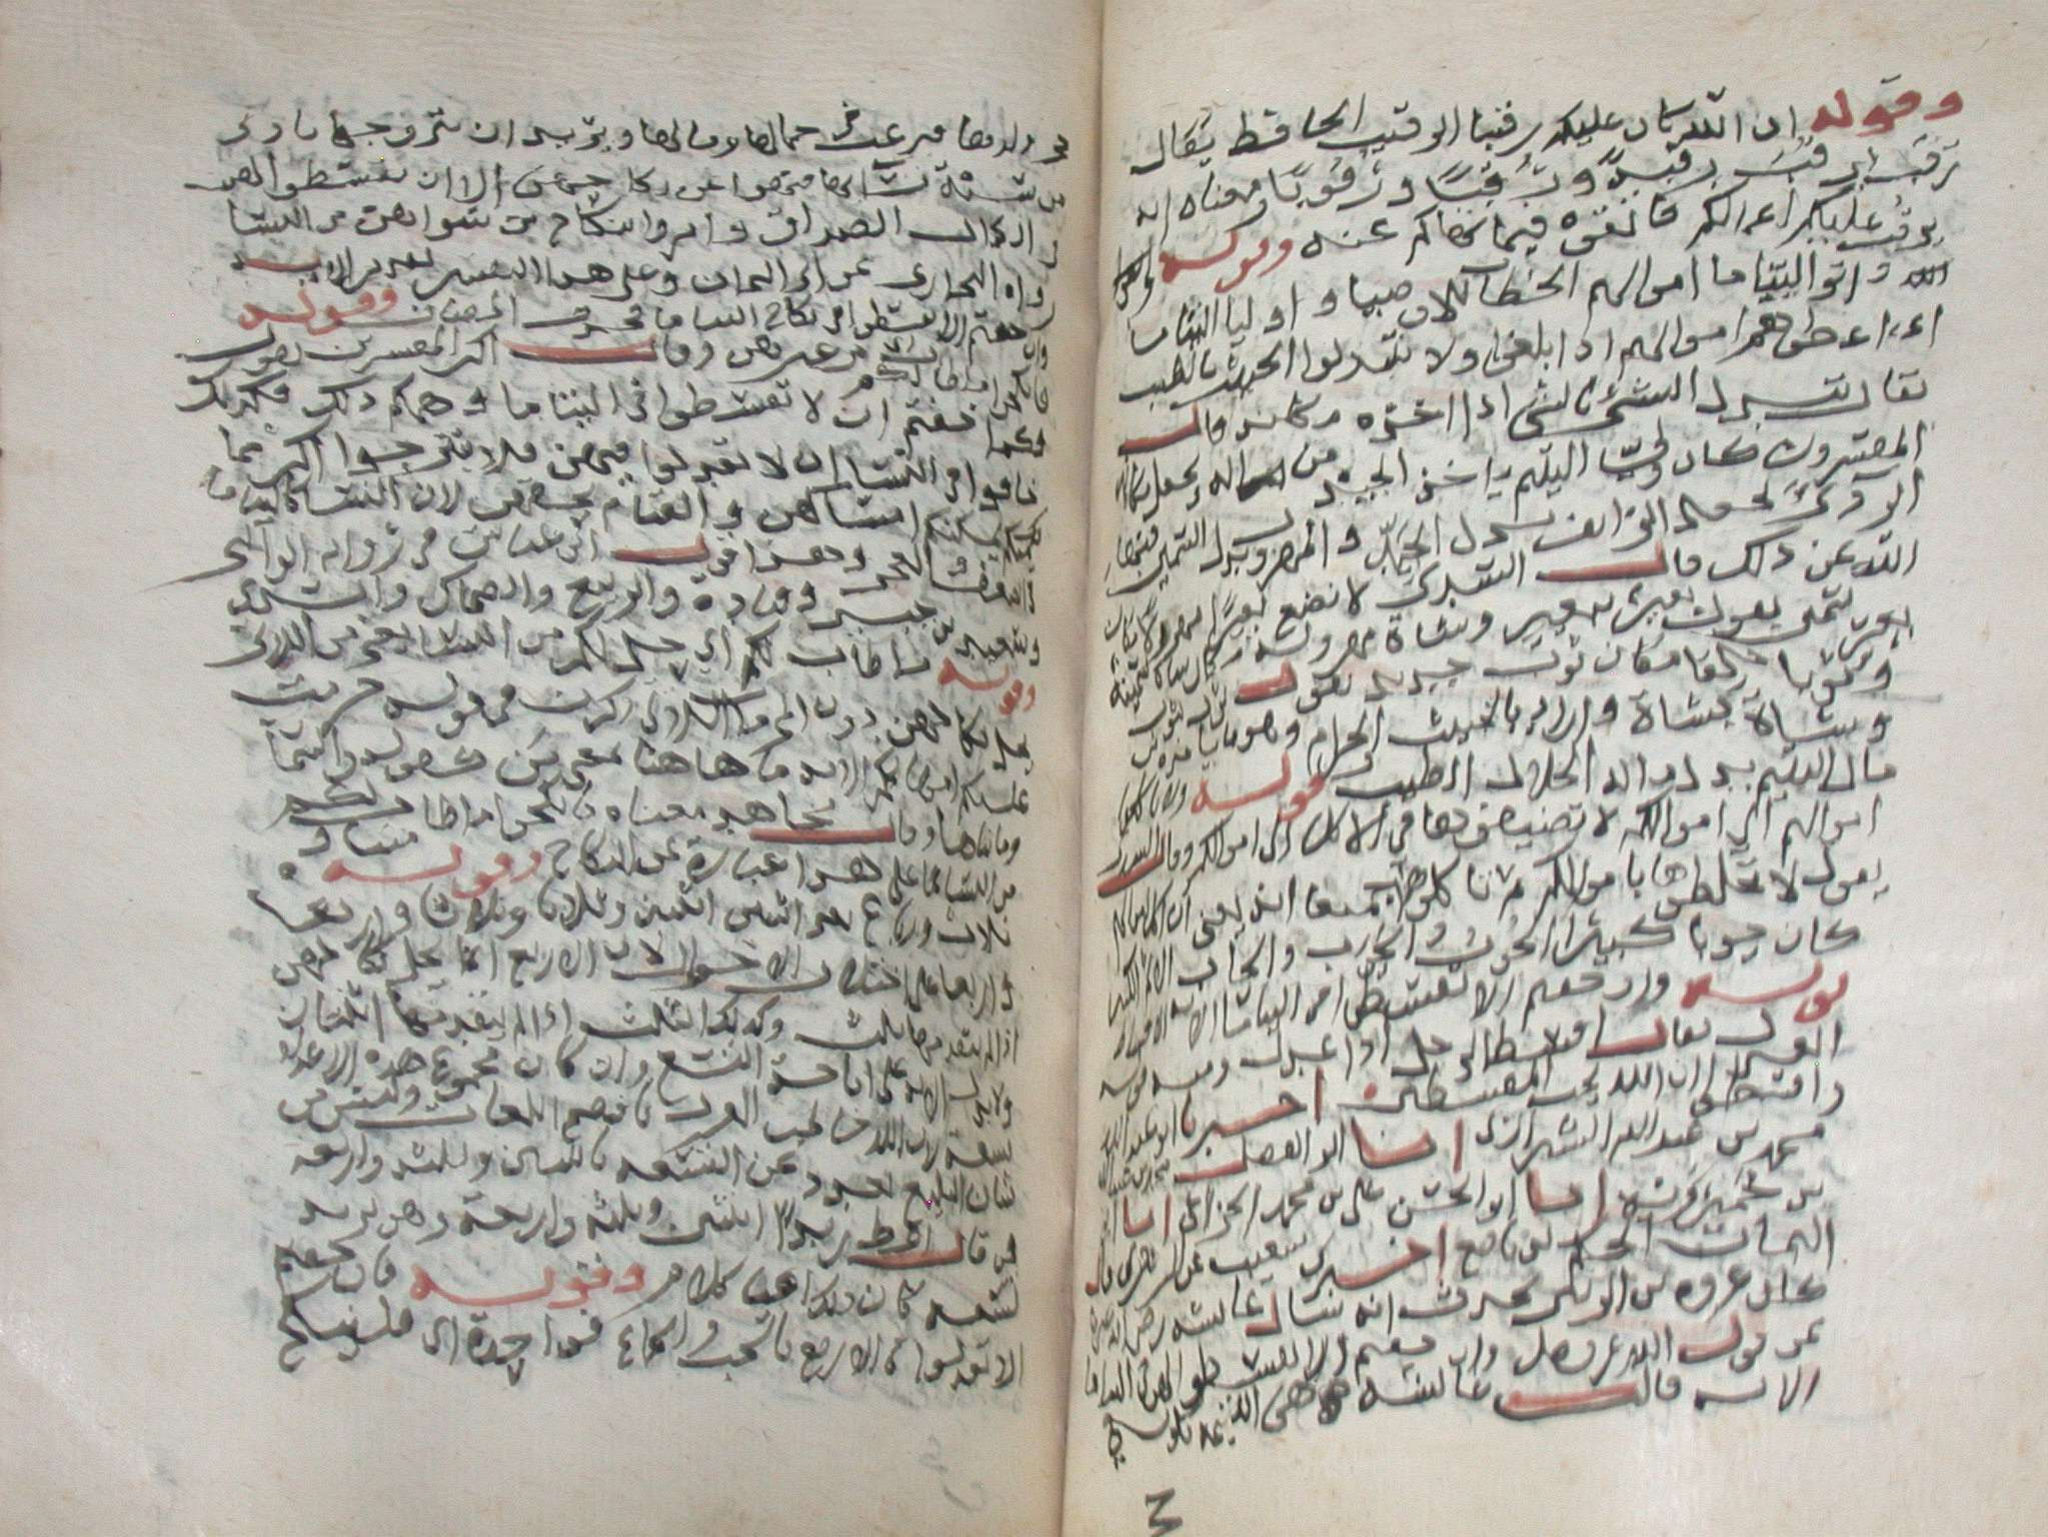 وقوله ان الله كان عليكم رقيبا الرقيب الحافظ يقال
رقب يرقب رقبة ورقبا ورقوبا ومعناه انه
يرقب عليكم اعمالكم فاتقوه فيما نهاكم عنه وقوله
واتوا اليتاما اموالهم الخطاب للاوصيا واوليا اليتاما
اي اعطوهم اموالهم اذا بلغوا ولا تتبدلوا الخبيث بالطيب
يقال تبدل الشي بالشي اذا اخذه مكانه قال
المفسرون كان ولي اليتيم ياخذ الجيد من ماله ويجعل مكانه
الردي يجعل الزايف بدل الجيد والمهزول بدل السمين فنهاهم
الله عن ذلك قال السدي لا تضع بعيرا مهزولا مكان
بعير سمين يقول بعير ببعير وشاة مهزولة مكان شاة سمينة
وثوبا خلقا مكان ثوب جديد يقول ثوب بثوب
وشاة بشاة واراد بالخبيث الحرام وهو ما ياخذه من
مال اليتيم بدل ماله الحلال الطيب قوله ولا تاكلوا
اموالهم الى اموالكم لا تضيفوها في الاكل الى اموالكم وقال السدي
يقول لا تخلطوها باموالكم ثم تاكلوها جميعا انه يعني ان اكل اموالهم
كان حوبا كبيرا الحوب والحوب والحاب الاثم الكبير
قوله وان خفتم الا تقسطوا في اليتاما الاية الاقساط
العدل يقال اقسط الرجل اذا عدل ومنه قوله
واقسطوا ان الله يحب المقسطين اخبرنا ابو عبد الله
محمد بن عبد الله الشيرازي انا ابو الفضل محمد بن عبد الله
بن خميرويه انا ابو الحسن علي بن محمد الخزاعي انا ابو
اليمان الحكم بن نافع اخبرني شعيب عن الزهري قال
كان عروة بن الزبير يحدث انه سال عايشة رضي الله عنها
عن قول الله عز وجل وان خفتم الا تقسطوا في اليتاما
الاية قالت عايشة هي اليتيمة تكون في
حجر وليها فيرغب في جمالها ومالها ويريد ان يتزوجها بادنى
من سنة نسائها فنهوا عن نكاحهن الا ان يقسطوا لهن
في اكمال الصداق وامروا بنكاح من سواهن من النسا
رواه البخاري عن ابي اليمان وعلى هذا التفسير تقدير الاية
وان خفتم الا تقسطوا في نكاح اليتاما فحذف المضاف وقوله
فانكحوا ما طاب لكم من غيرهن وقال اكثر المفسرين يقول
وكما خفتم ان لا تقسطوا في اليتاما وهمكم ذلك فكذلك
خافوا في النسا ان لا تعدلوا فيهن فلا تتزوجوا اكثر مما
يمكنكم امساكهن والقيام بحقهن لان النسا كاليتاما
في الضعف والعجز وهذا قول ابن عباس في رواية الوالبي
وسعيد بن جبير وقتادة والربيع والضحاك والسدي
وقوله ما طاب لكم اي حل لكم من النسا يعني من اللاتي
يحل نكاحهن دون المحرمات اللاتي ذكرن في قوله حرمت
عليكم امهاتكم الاية وما هاهنا بمعنى من كقوله والسما
وما بناها وقال مجاهد معناه فانكحوا ما طاب لكم
من النسا نكاحا طيبا على هذا عبارة عن النكاح وقوله مثنى و
ثلاث ورباع يعني اثنين اثنين وثلاثا وثلاثا واربعا
واربعا على اختلاف الاحوال لان الاربع انما يحل نكاحهن
اذا لم يتقدمها ثلاث وكذلك الثلث اذا لم يتقدمها اثنتان
ولا تدل الاية على اباحة التسع وان كان مجموع هذه الاعداد
تسعة لان الله خاطب العرب بافصح اللغات وليس من
شان البليغ ان يعبر عن التسعة باثنين وثلثة واربعة
من قال اعط زيدا اثنين وثلثة واربعة وهو يريد
تسعة كان ذلك اعيا كلام وقوله فان خفتم
الا تعدلوا في الاربع بالحب والجماع فواحدة اي فلينكح